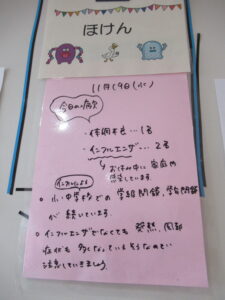 ほけん
11月19日(水)
今日の病欠
・体調不良…1名
・インフルエンザ…2名
お休み中に家庭や
感染しています。
インフルエンザ
○小・中学校での学級閉鎖、学年閉鎖
が続いています。
○インフルエンザでなくても発熱、風邪
症状も多くなっているようなので
注意していきましょう